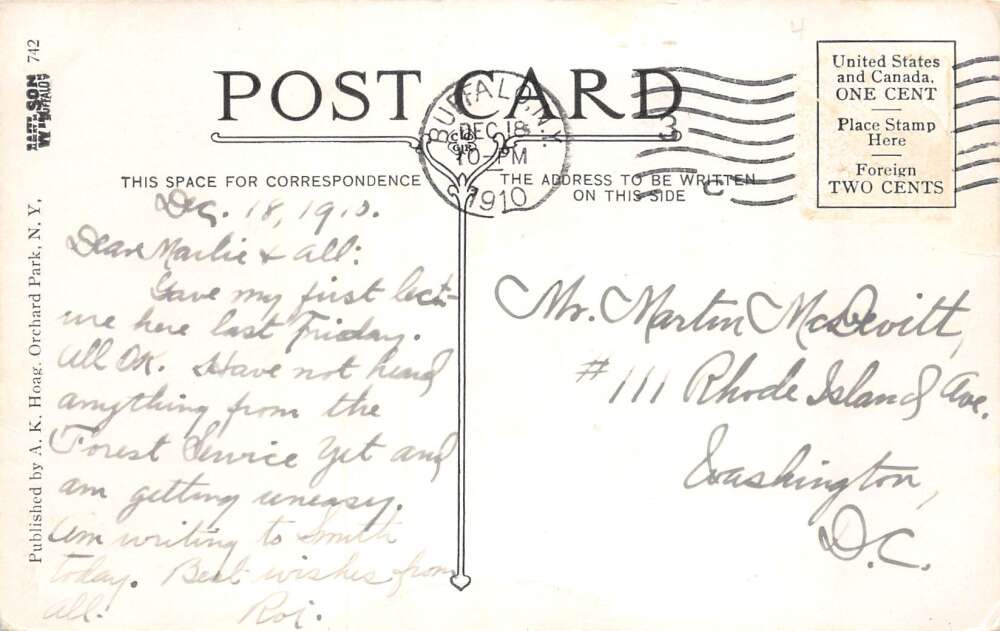 POST CARD
BUFFALO, N.Y.
DEC 18
10-PM
1910
3
C
United States
and Canada,
ONE CENT
Place Stamp
Here
Foreign
TWO CENTS
THIS SPACE FOR CORRESPONDENCE
THE ADDRESS TO BE WRITTEN
ON THIS SIDE
Dec. 18, 1910.
Dear & all:
Gave my first lect-
ure here last Friday.
All OK. Have not heard
anything from the
Forest Service yet and
am getting uneasy.
Am writing to Smith
today. Best wishes from
all. Roi.
Mr. Martin McDevitt,
# 111 Rhode Island Ave.
Washington,
D.C.
Published by A. K. Hoag, Orchard Park, N. Y.
WILSON
BUFFALO
742